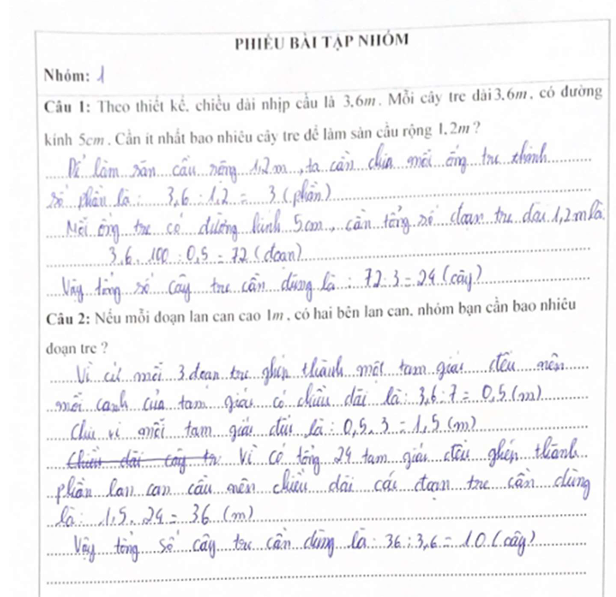 PHIẾU BÀI TẬP NHÓM
Nhóm: 1
Câu 1: Theo thiết kế, chiều dài nhịp cầu là 3,6m. Mỗi cây tre dài 3,6m, có đường
kính 5cm. Cần ít nhất bao nhiêu cây tre để làm sàn cầu rộng 1,2m?
Để làm sàn cầu rộng 1,2m, ta cần chia mỗi ống tre thành
số phần là: 3,6 : 1,2 = 3 (phần)
Mỗi ống tre có đường kính 5cm, cần tổng số đoạn tre dài 1,2m là
3,6 . 100 : 0,5 = 72 (đoạn)
Vậy tổng số cây tre cần dùng là: 72 : 3 = 24 (cây)
Câu 2: Nếu mỗi đoạn lan can cao 1m, có hai bên lan can, nhóm bạn cần bao nhiêu
đoạn tre?
Vì cứ mỗi 3 đoạn tre ghép thành một tam giác đều nên
mỗi cạnh của tam giác có chiều dài là: 3,6 : 7 = 0,5 (m)
Chu vi mỗi tam giác đều là: 0,5 . 3 = 1,5 (m)
Chiều dài cây tr Vì có tổng 24 tam giác đều ghép thành
phần lan can cầu nên chiều dài các đoạn tre cần dùng
là: 1,5 . 24 = 36 (m)
Vậy tổng số cây tre cần dùng là: 36 : 3,6 = 10 (cây)